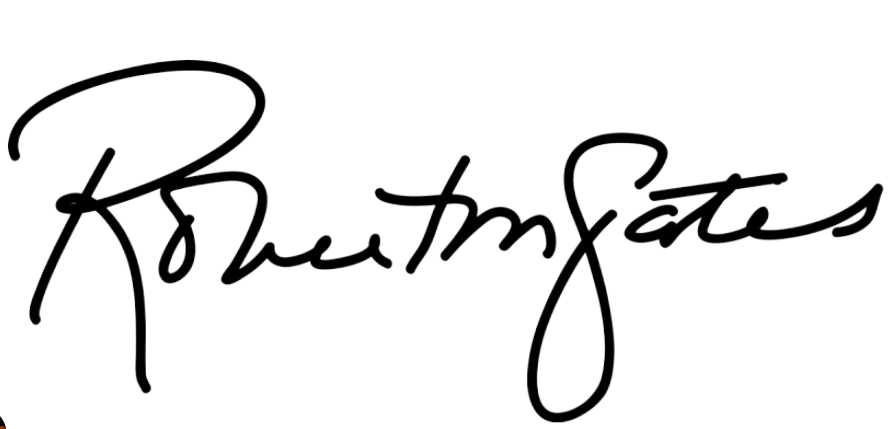 Robert M Gates